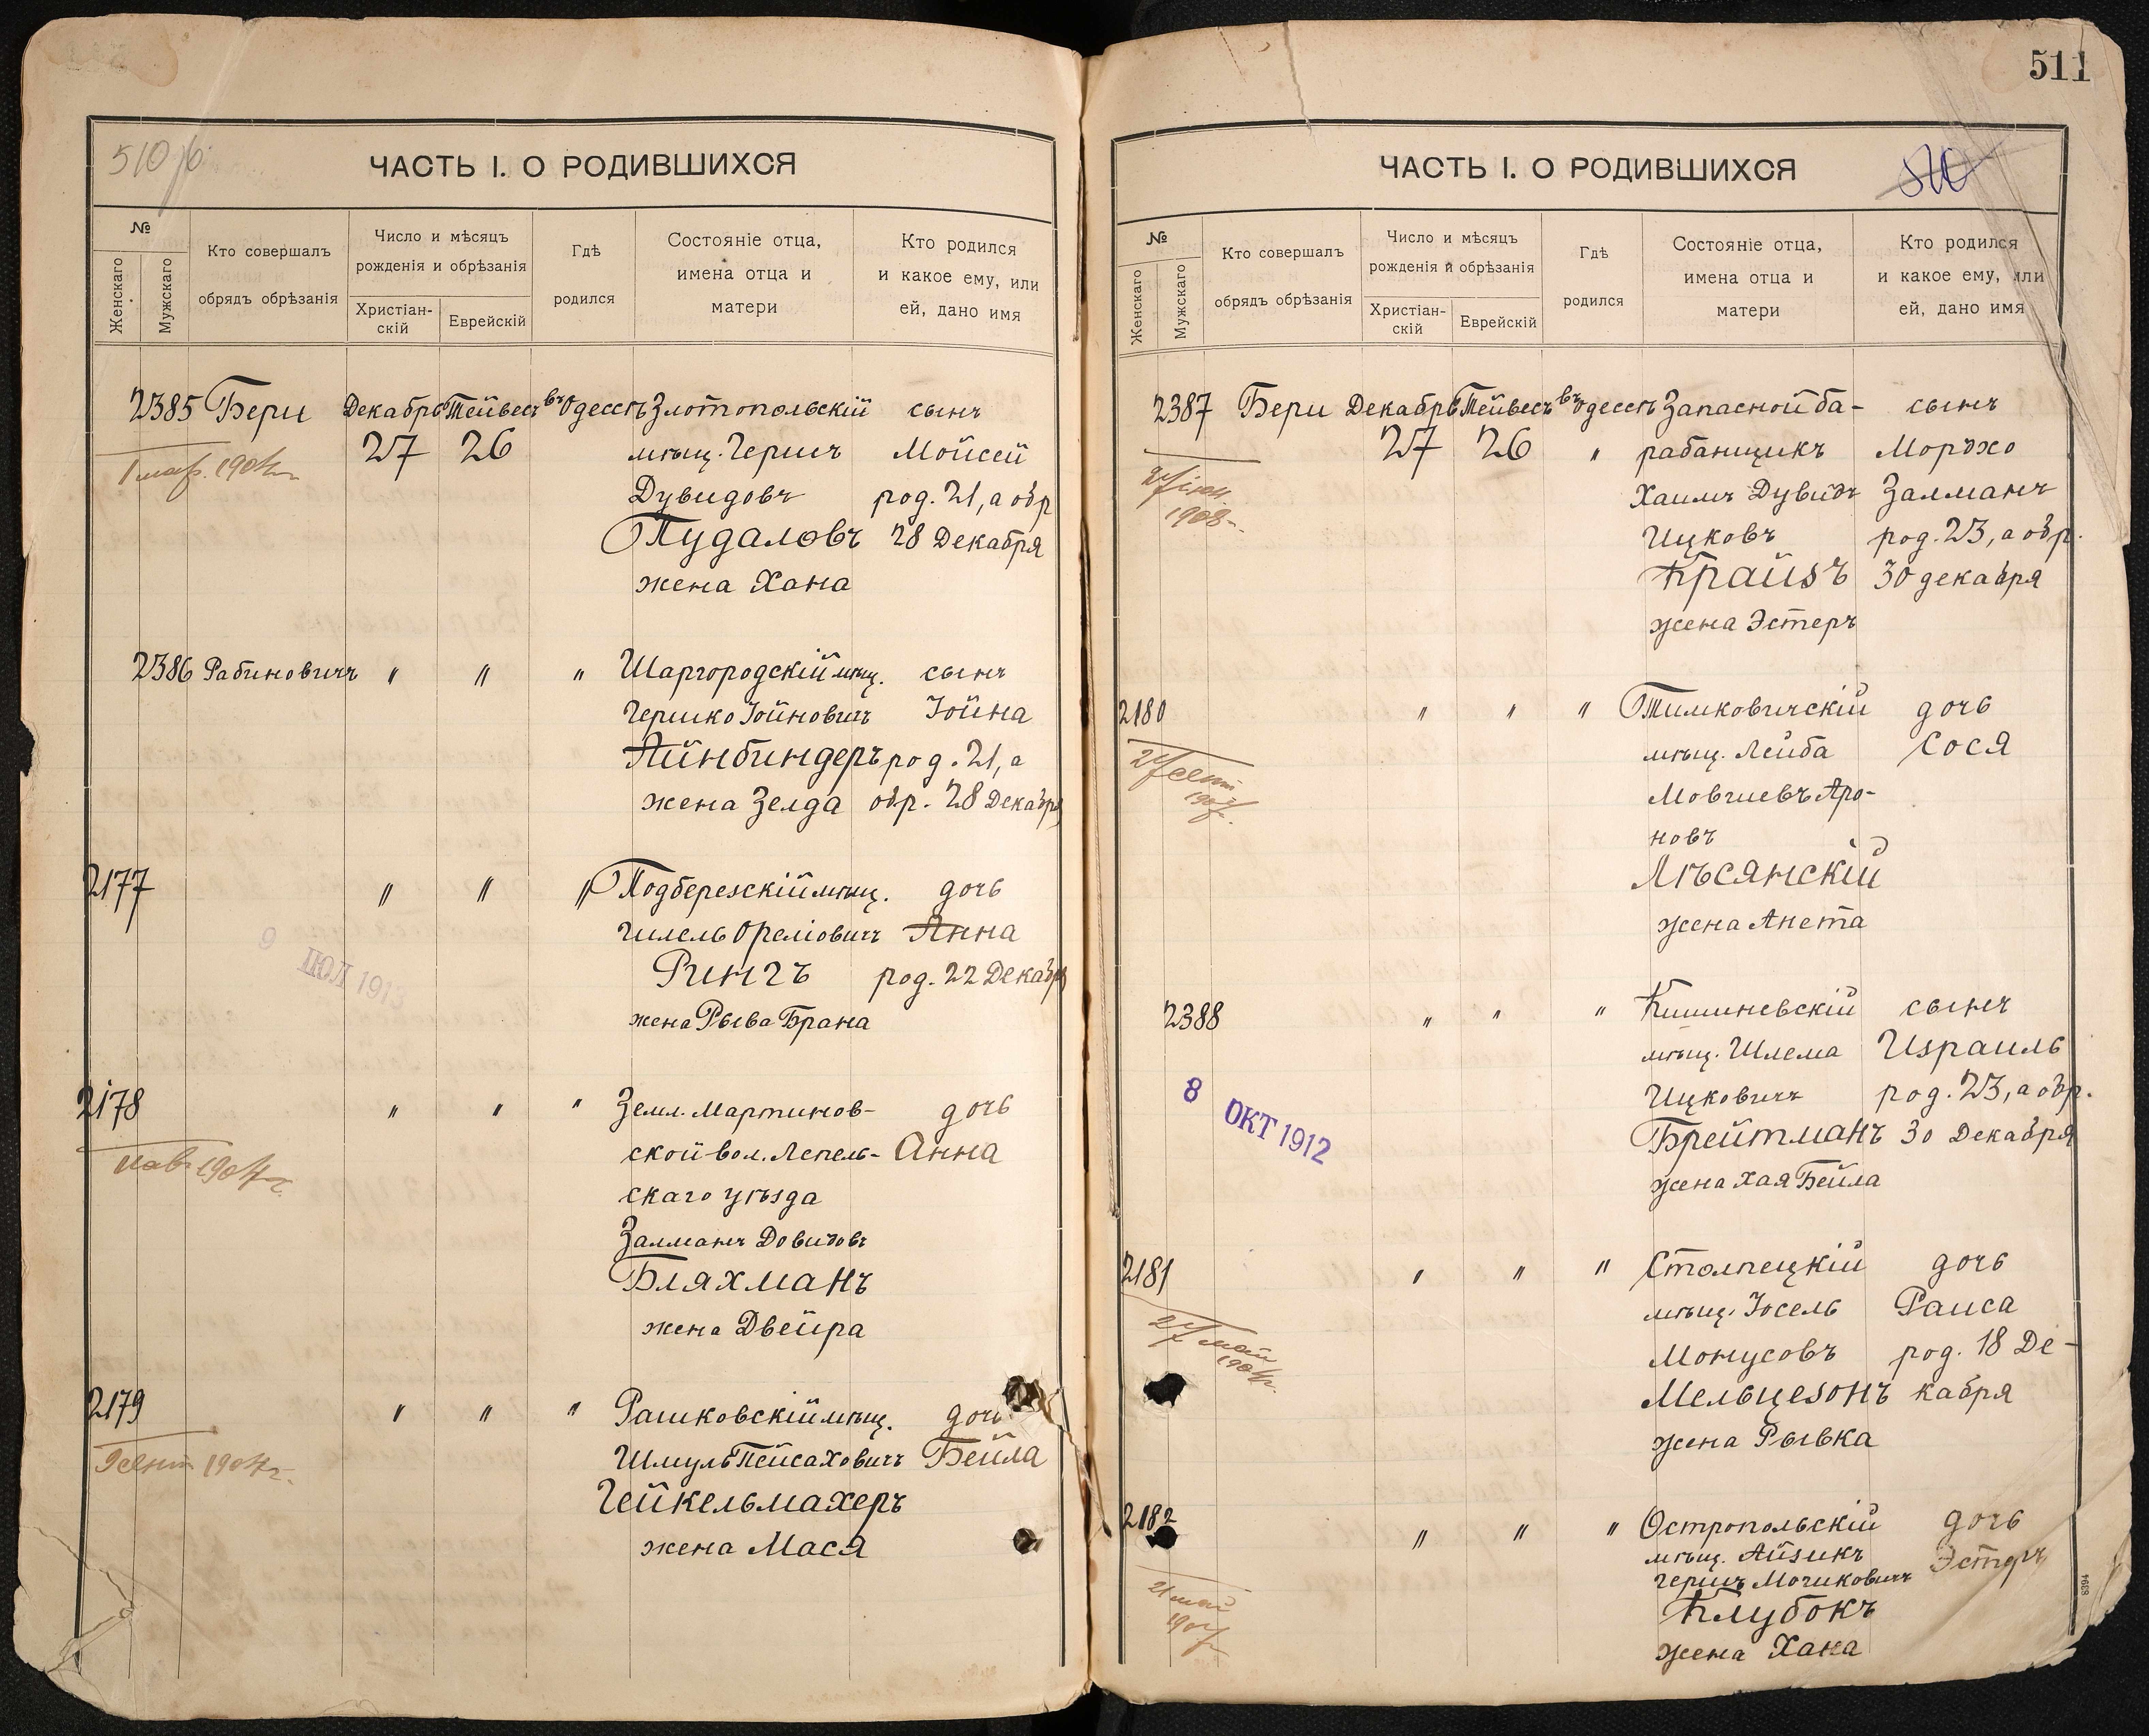 510 об
ЧАСТЬ I. О РОДИВШИХСЯ
№
Женскаго
Мужскаго
Кто совершалъ
обрядъ обрѣзанія
Число и мѣсяцъ
рожденія и обрѣзанія
Христіан-
скій
Еврейскій
Гдѣ
родился
Состояніе отца,
имена отца и
матери
Кто родился
и какое ему, или
ей, дано имя
2385 Бери Декабрь Тейвесъ въ Одессѣ Злотопольскій сынъ
27 26 мѣщ. Гершъ Мойсей
Дувидовъ род. 21, а обр
Пудаловъ 28 Декабря
жена Хана
2386 Рабиновичъ " " " Шаргородскій мѣщ. сынъ
Гершко Іойновичъ Іойна
Айнбиндеръ род. 21, а
жена Зелда обр. 28 Декабря
2177 " " " Подберезскій мѣщ. дочь
Гилель Ореліовичъ Анна
Рингъ род. 22 Декабр
жена Рыва Брана
9 ІЮЛ 1913
2178 " " " Земл. Мартинов- дочь
ской вол. Лепель- Анна
скаго уѣзда
Залманъ Довидовъ
Бляхманъ
жена Двейра
1904 г.
2179 " " " Рашковскій мѣщ. дочь
Шмуль Пейсаховичъ Бейла
Гейкельмахеръ
жена Мася
9 сент 1904 г.
511
ЧАСТЬ I. О РОДИВШИХСЯ
510
№
Женскаго
Мужскаго
Кто совершалъ
обрядъ обрѣзанія
Число и мѣсяцъ
рожденія и обрѣзанія
Христіан-
скій
Еврейскій
Гдѣ
родился
Состояніе отца,
имена отца и
матери
Кто родился
и какое ему, или
ей, дано имя
2387 Бери Декабрь Тейвесъ въ Одессѣ Запасной ба- сынъ
27 26 " рабанщикъ Мордхо
Хаимъ Дувидъ Залманъ
Ицковъ род. 23, а обр.
Крайзъ 30 декабря
жена Эстеръ
2180 " " " Тимковичскій дочь
мѣщ. Лейба Сося
Мовшевъ Аро-
новъ
Лѣсянскій
жена Анета
2388 " " " Кишиневскій сынъ
мѣщ. Шлема Израиль
Ицковичъ род. 23, а обр.
Брейтманъ 30 Декабря
жена Хая Бейла
8 ОКТ 1912
2181 " " " Столпецкій дочь
мѣщ. Іосель Раиса
Монусовъ род. 18 Де-
Мельцезонъ кабря
жена Рывка
2182 " " " Остропольскій дочь
мѣщ. Айзикъ Эстеръ
Гершъ Мошковичъ
Клубокъ
жена Хана
8394